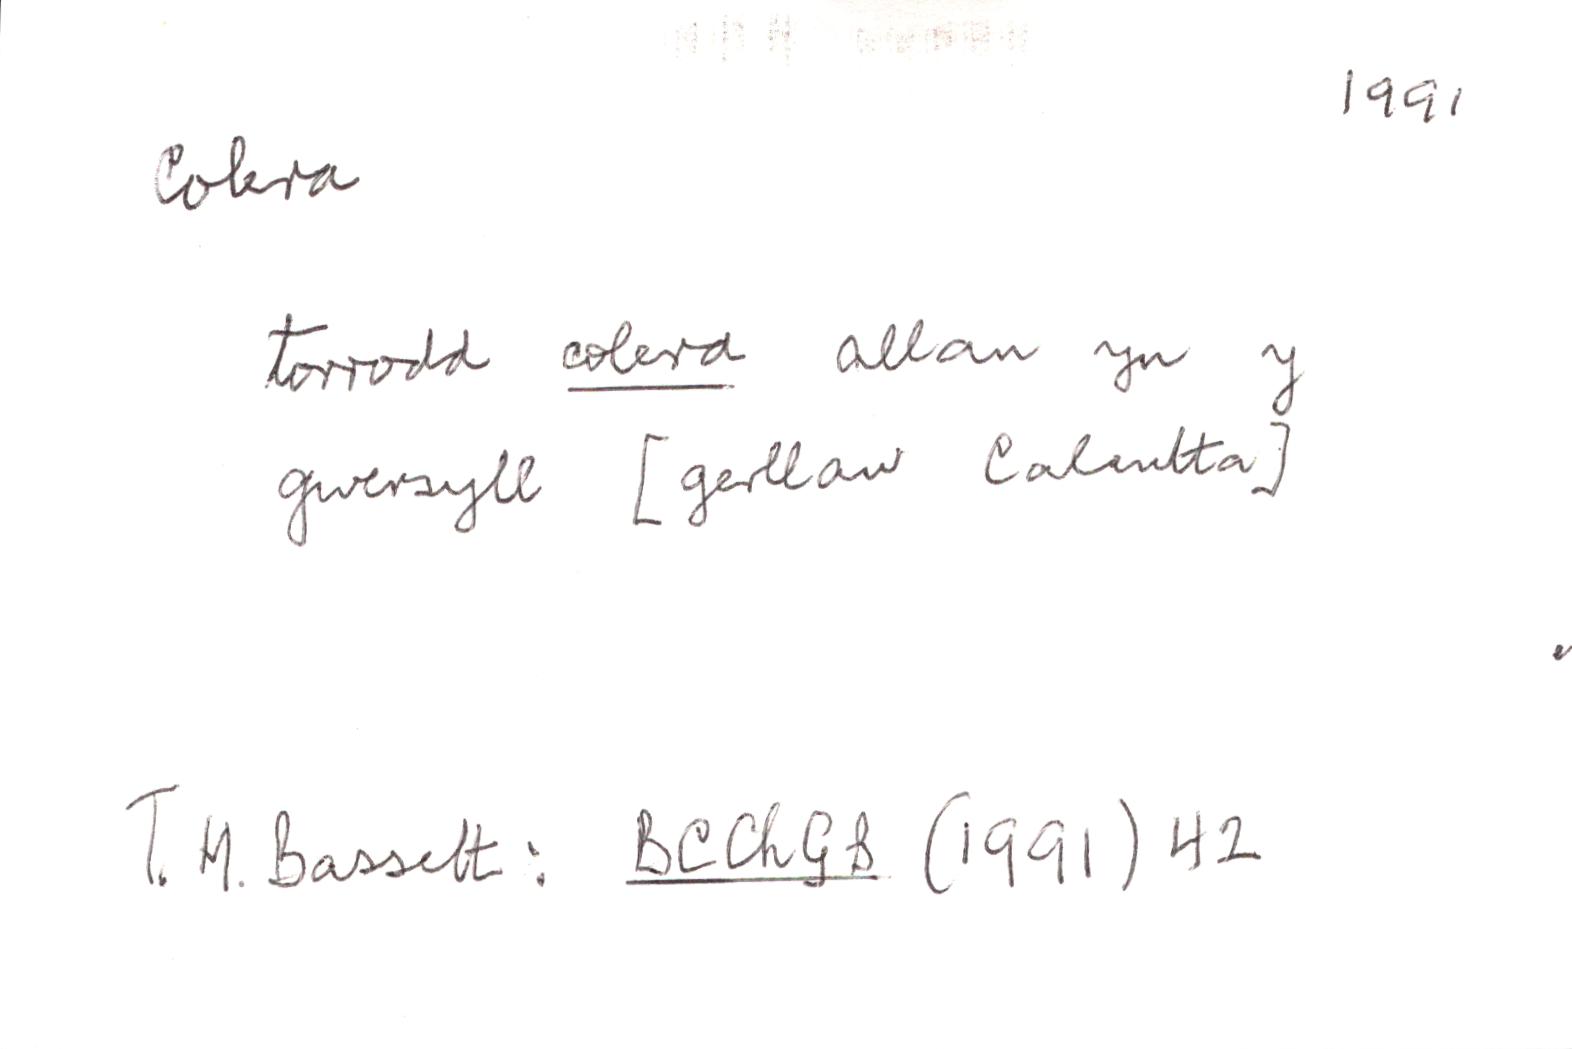 1991
Colera
torrodd colera allan yn y
gwersyll [gerllaw Calcutta]
T. M. Bassett: BCChGB (1991) 42